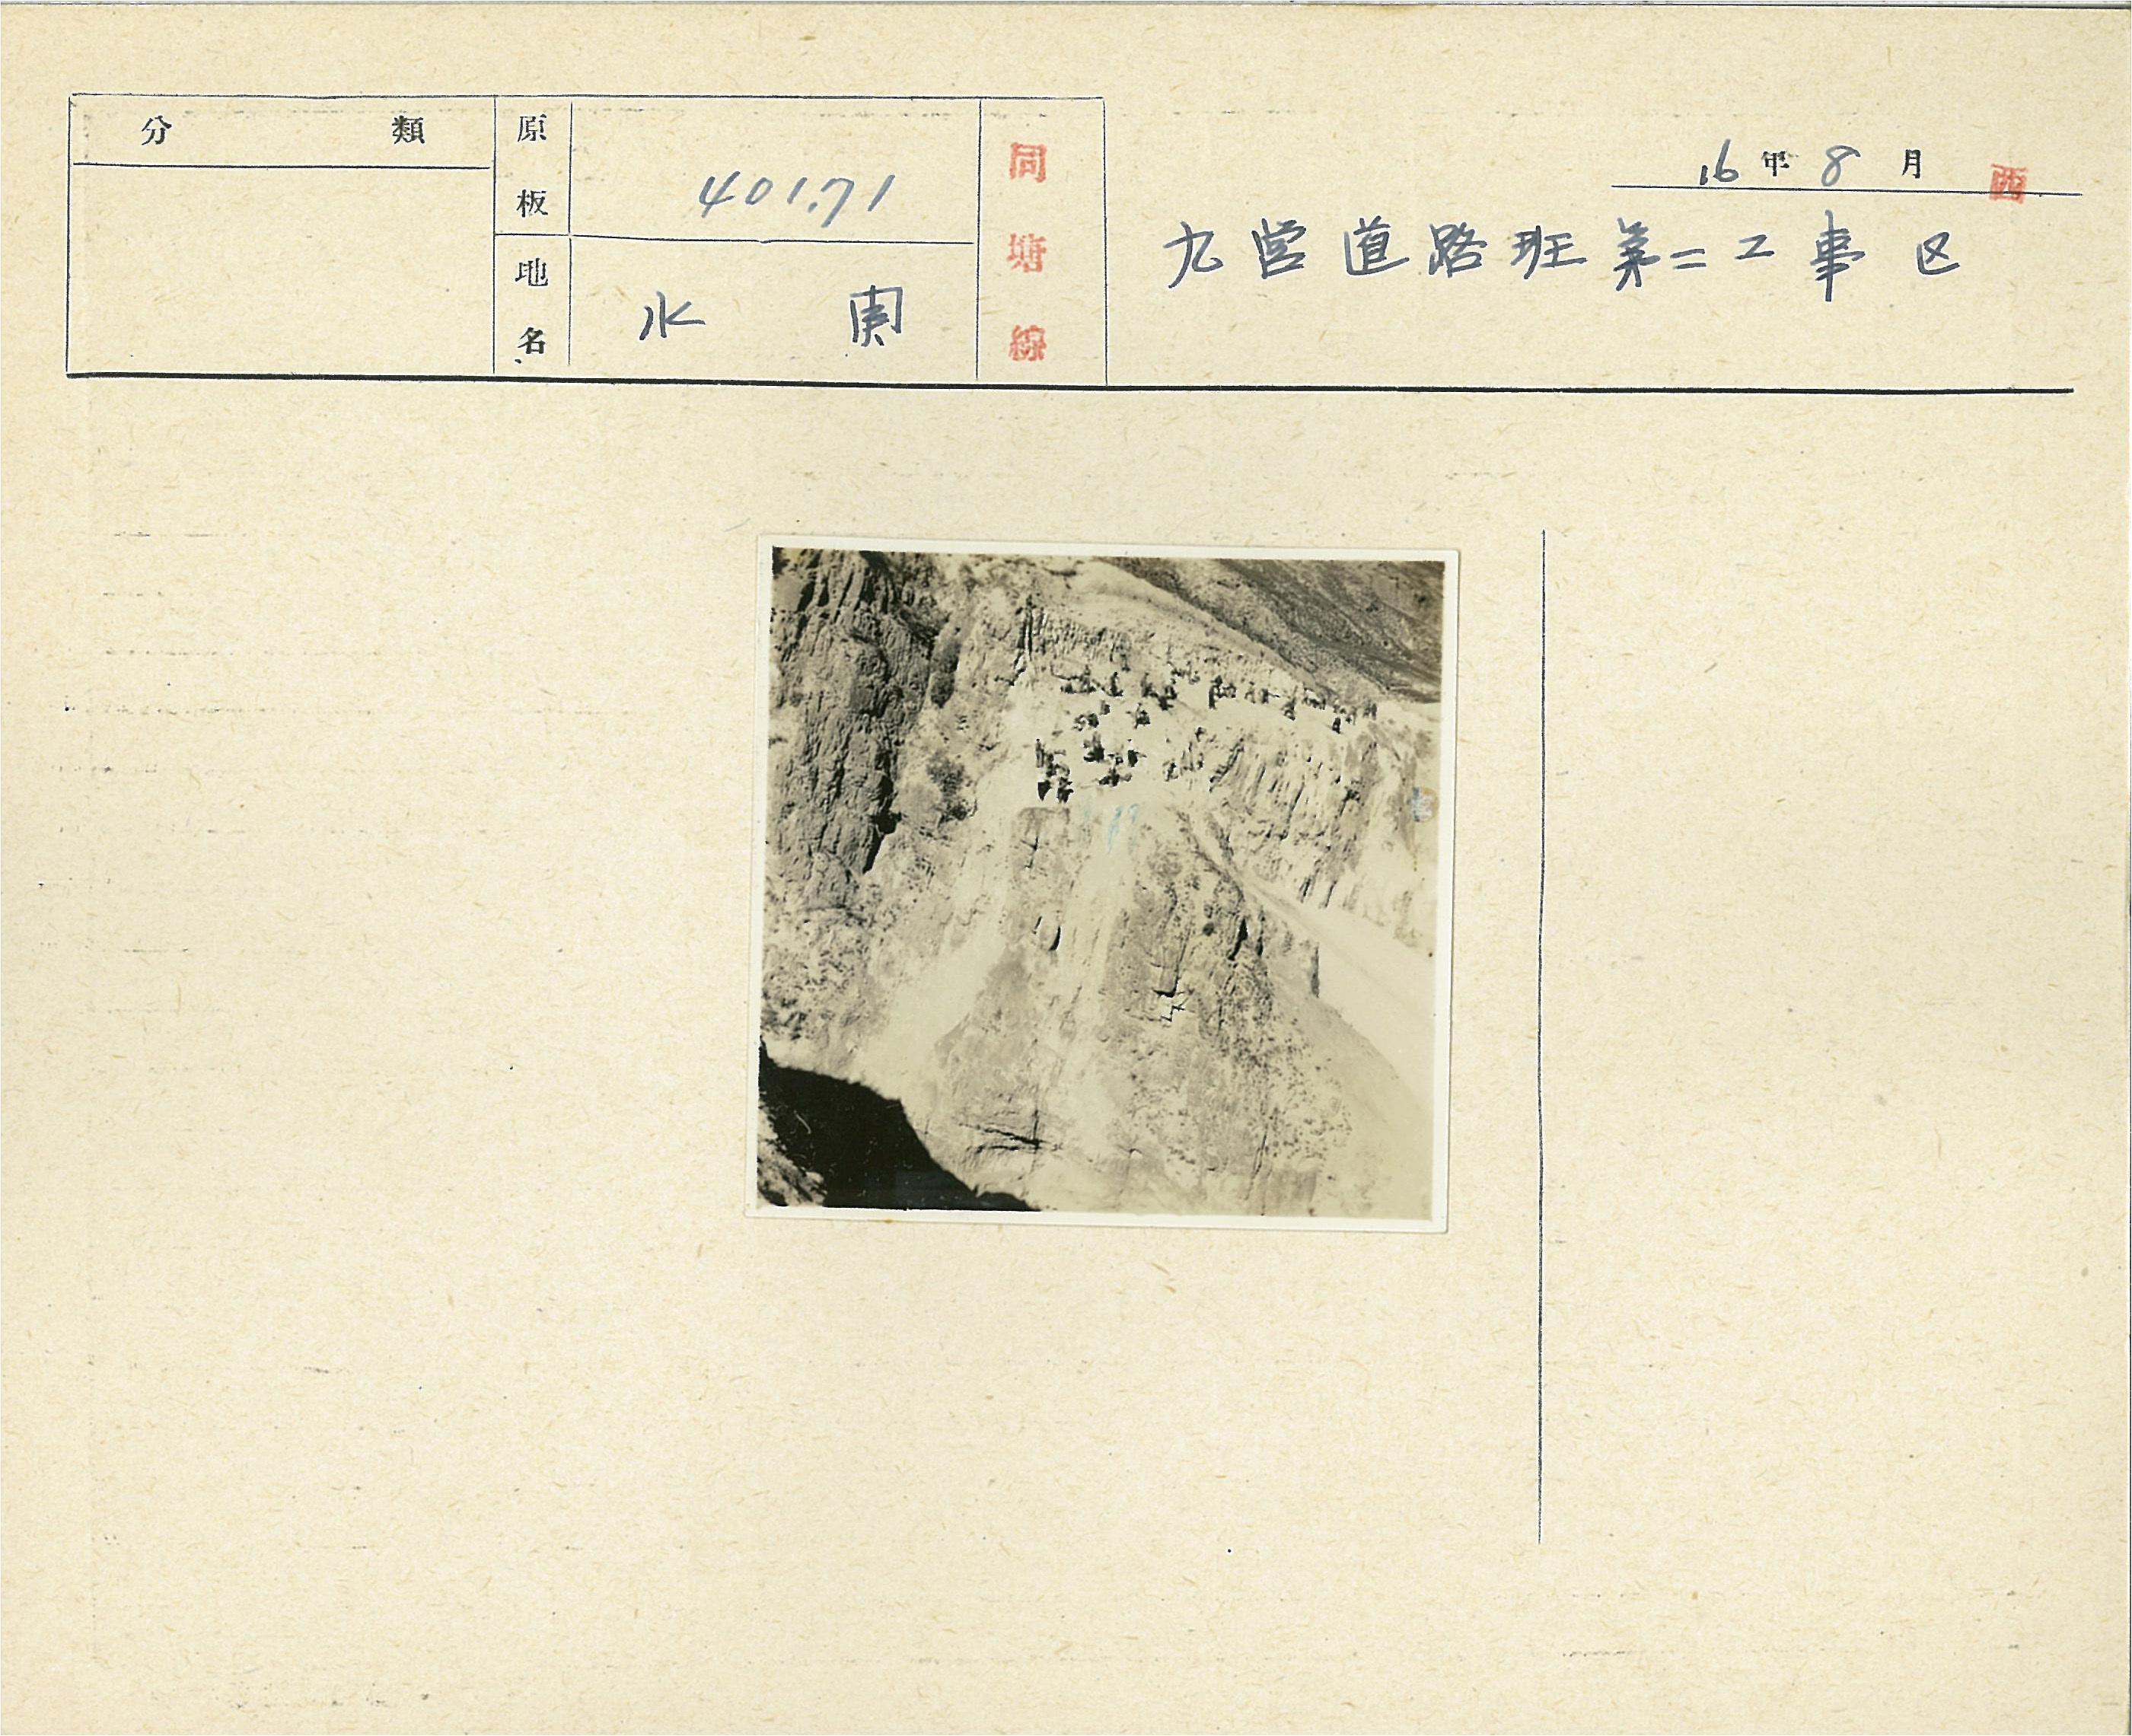 分類
原板 401.71
地名 水
同塘線
16年8月 西
九営道路班第二工事区